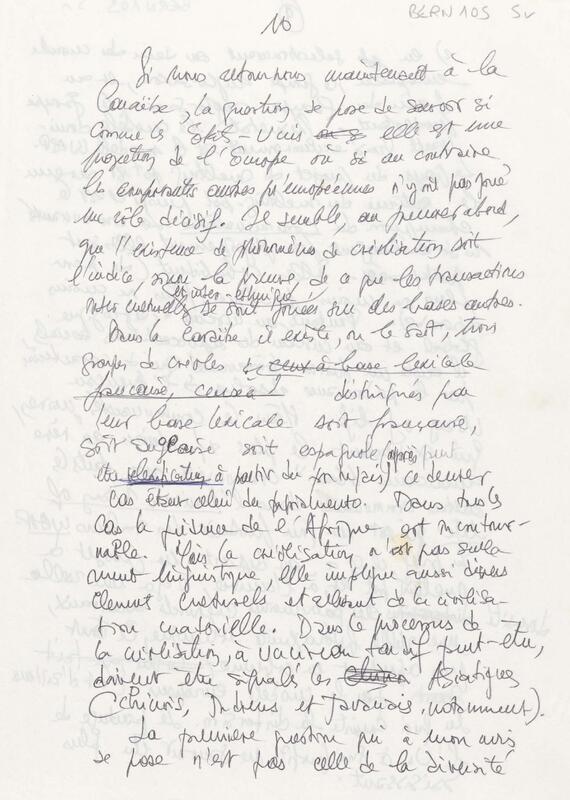 10
BERN 103 5v
Si nous retournons maintenant à la
Caraïbe, la question se pose de savoir si
comme les Etats-Unis elle est une
projection de l'Europe ou si au contraire
les composantes autres qu'européennes n'y ont pas joué
un rôle décisif. Il semble, au premier abord,
que l'existence de phénomènes de créolisation soit
l'indice, sinon la preuve, de ce que les transactions
inter-ethniques
se sont jouées sur des bases autres.
Dans la Caraïbe il existe, on le sait, trois
groupes de créoles ceux à base lexicale
française, ceux à distingués par
leur base lexicale soit française,
soit anglaise soit espagnole (après
relexification à partir du portugais) ce dernier
cas étant celui du papiamento. Dans tous les
cas la présence de l'Afrique est incontour-
nable. Mais la créolisation n'est pas seule
ment linguistique, elle implique aussi divers
élément culturels et relevant de la civilisa-
tion matérielle. Dans le processus de
la créolisation, à un niveau peut-être,
doivent être signalés les Asiatiques
(Chinois, Indiens et Javanais, notamment).
La première question qui à mon avis
se pose n'est pas celle de la diversité